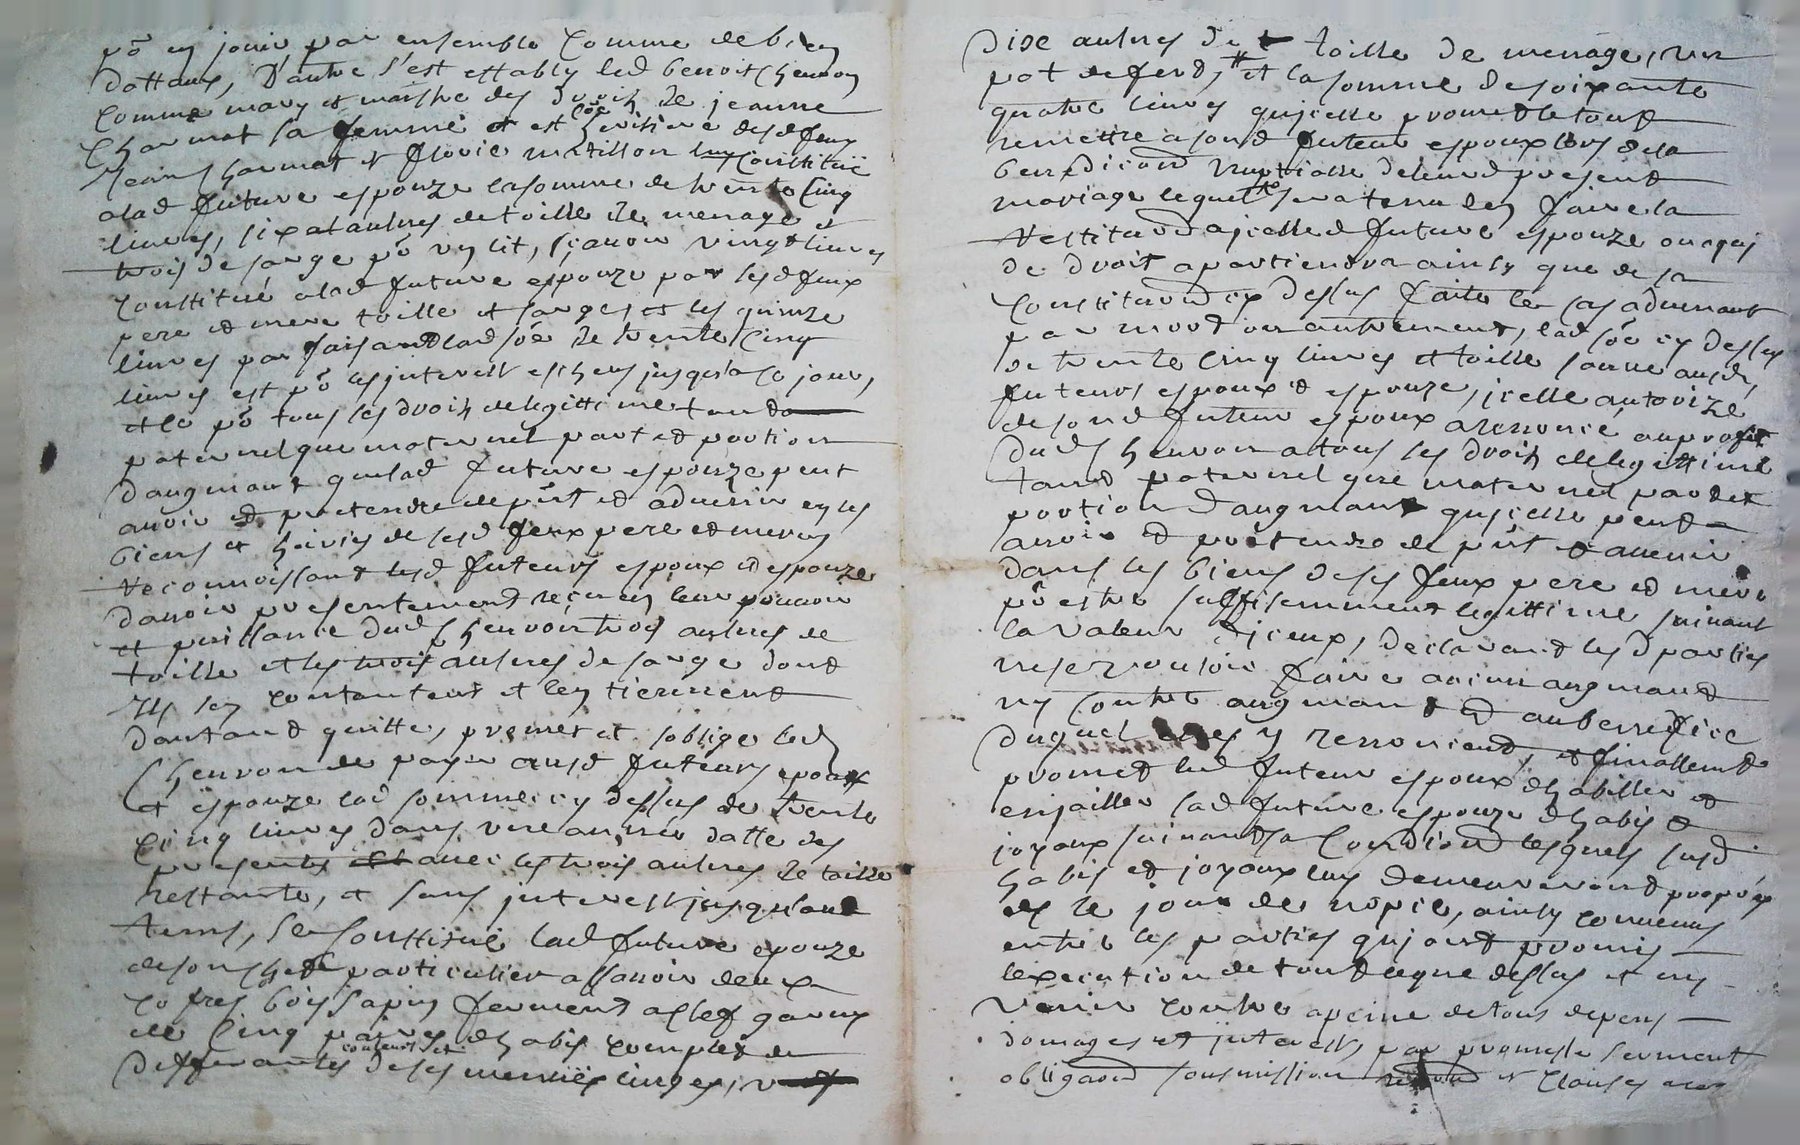 pō en jouir par ensemble comme de bien
dottaux, D'autre s'est estably led benoit Chenvon
comme mary et maistre des droitz de jeanne
Charmat sa femme et est heritiere desd feux
Jean Charmat et flovie matillon luy constitue
alad future espouze la somme de trente cinq
livres, six aulnes de toille de menage et
trois de sarge pō un lit, sçavoir vingt livres
constitué alad future espouze par lesd feux
pere et mere toille et sarge et les quinze
livres par faisant lad sōe de trente cinq
livres est pō les interest escheus jusqu'a ce jour,
et ce pō tous les droitz de legittime tand
paternel que maternel part et portion
daugmant que lad future espouze peut
avoir et pretendre de pūt et advenir en les
biens et hoiries de sesd feux pere et mere
Reconnoissant lesd futeurs espoux et espouze
davoir presentement reçu en leur pouvoir
et puissance dud Chenvon trois aulnes de
toille et les trois aulnes de sarge dont
Ils sen contantent et len tiennent
dautand quitte, promet et soblige led
Chenvon de payer ausd futeurs epoux
et espouze lad somme cy dessus de trente
cinq livres dans une année datte des
presentes avec les trois aulnes de toille
restante, et sans interest jusqu'aud
tems, se constitue lad future epouze
de son chef particulier assavoir deux
cofres bois sapin fermant a clef garny
de cinq paires dhabis complet de
differantes couleurs et de ses menües linges,
Dixe aulnes de toille de menage, un
pot de ferd, et la somme de soixante
quatre livres qu'icelle promet de tout
remettre a sond futeur espoux lors de la
benediction nuptialle de leurd present
mariage lequel sera tenu len faire la
Restitu͞on a icelled future espouze ou a qui
de droit apartiendra ainsy que de sa
Constitu͞on cy dessus faite le cas advenant
par mort ou autrement, lad sōe cy dessus
de trente cinq livres et toille sarge ausd
futeurs espoux et espouze, icelle autorizé
de sond futeur espoux a renoncé au profit
dud Chenvon a tous les droitz de legittime
tand paternel que maternel part et
portion d'augmant qu'icelle peut
avoir et pretendre de pūt et avenir
dans les biens de ses feux pere et mere
pō estre suffisemment legittime suivant
la valeur d'iceux, declarant lesd parties
ne se vouloir faire aucun augmand
ny contre augmand et au beneffice
duquel elles y renoncient, et finallemt
promet led futeur espoux d'habiller et
enjailler sad future espouze d'habis et
joyaux suivant sa Condition lesquels susd
habis et joyaux luy demeureront propres
des le jour des nopce, ainsy convenus
entre les parties qui ont promis
lexecution de tout ceque dessus et ny
venir contre a peine de tous depens
domages et interests, par promesse serment
obligāon soumission et clauses